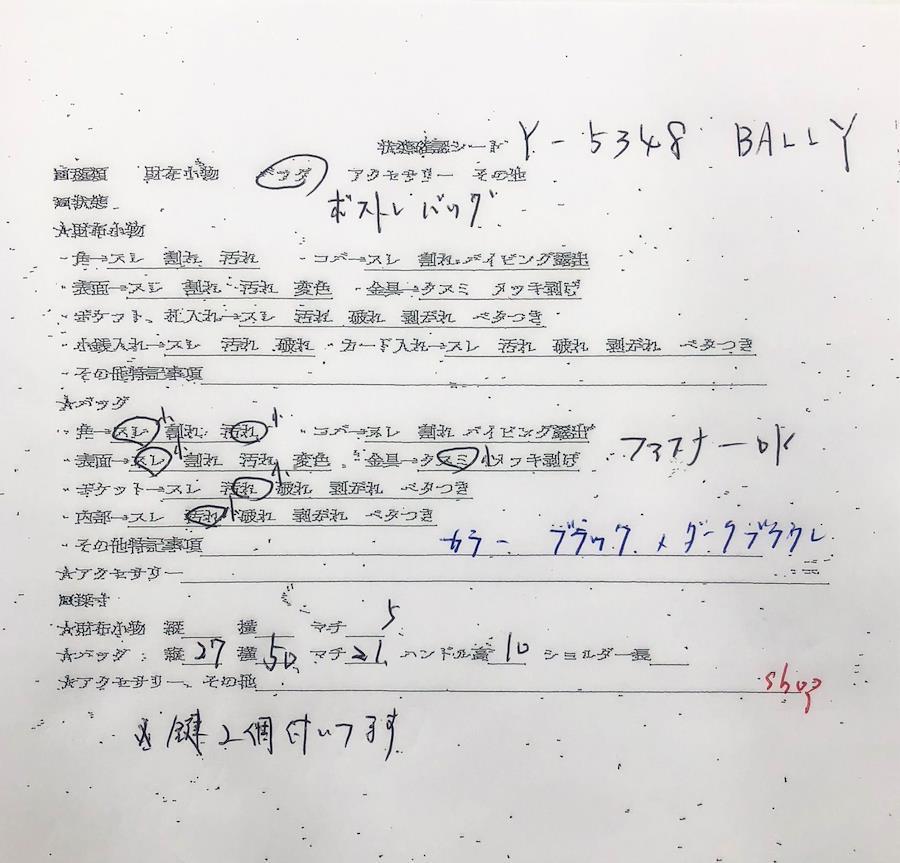 状態確認シート Y-5348 BALLY
■種類 財布小物 バッグ アクセサリー その他
■状態 ボストンバッグ
★財布小物
・角→スレ 割れ 汚れ ・コバ→スレ 割れ パイピング露出
・表面→スレ 割れ 汚れ 変色 ・金具→クスミ メッキ剥げ
・ポケット、札入れ→スレ 汚れ 破れ 剥がれ ベタつき
・小銭入れ→スレ 汚れ 破れ ・カード入れ→スレ 汚れ 破れ 剥がれ ベタつき
・その他特記事項
★バッグ
・角→スレ小 割れ 汚れ小 ・コバ→スレ 割れ パイピング露出
・表面→スレ小 割れ 汚れ 変色 ・金具→クスミ小 メッキ剥げ ファスナーOK
・ポケット→スレ 汚れ小 破れ 剥がれ ベタつき
・内部→スレ 汚れ小 破れ 剥がれ ベタつき
・その他特記事項 カラー ブラック×ダークブラウン
★アクセサリー
■採寸
★財布小物 縦 横 マチ 5
★バッグ:縦 27 横 50 マチ 21 ハンドル高 10 ショルダー長
★アクセサリー、その他 shop
※鍵2個付いてます